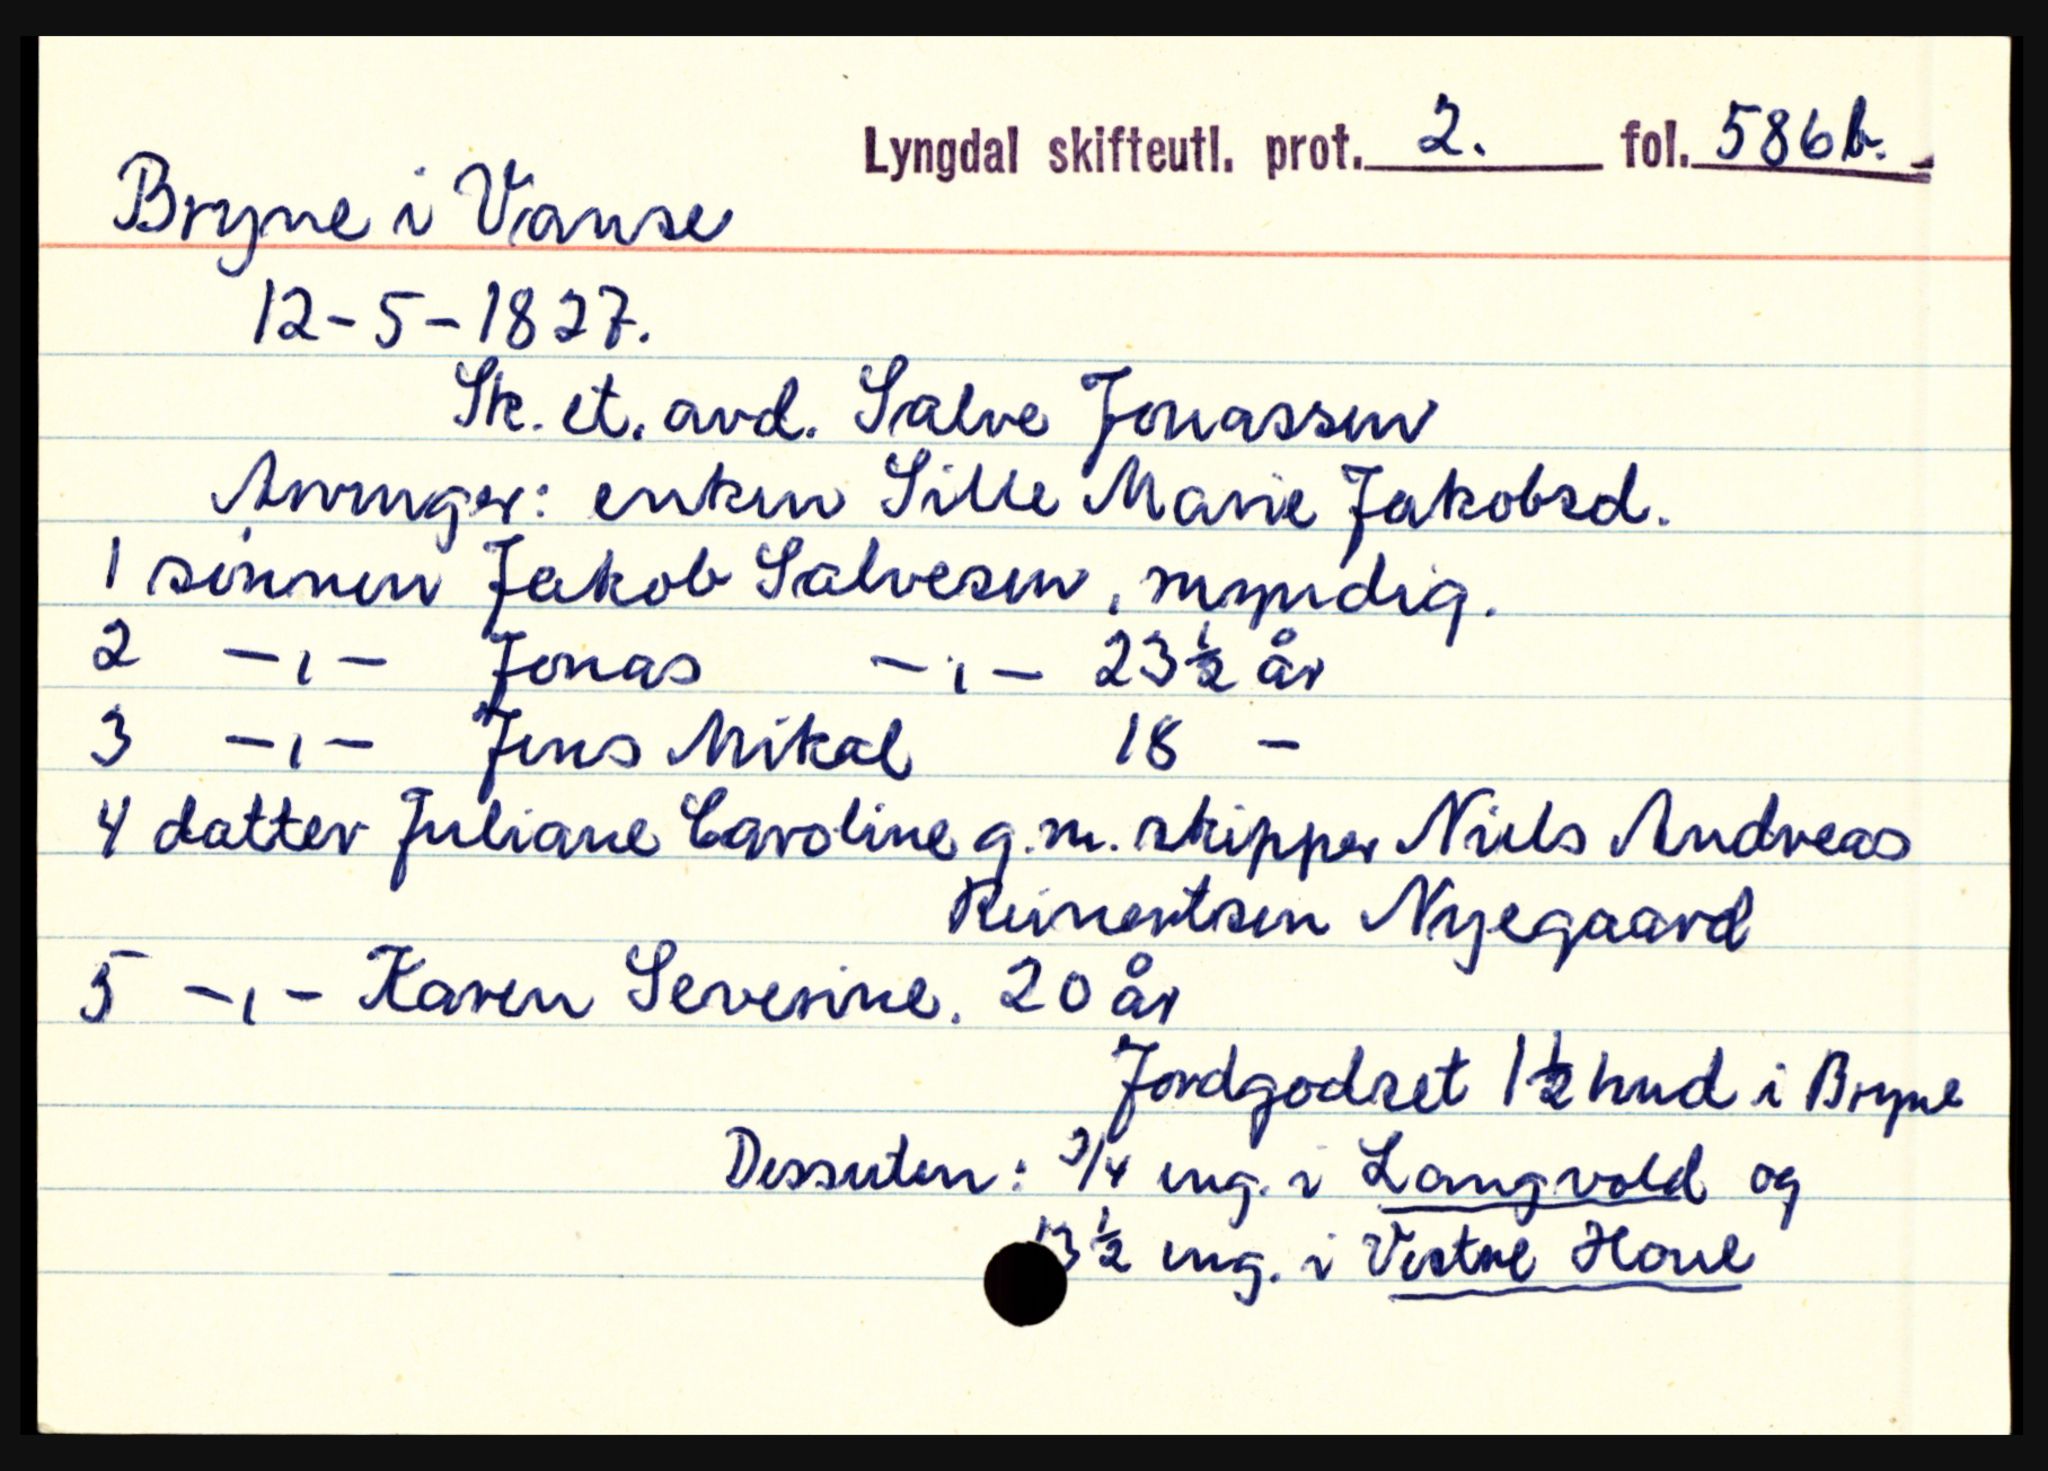 Lyngdal skifteutl. prot. 2. fol. 586b.
Bryne i Vanse
12-5-1827.
Sk. et. avd. Salve Jonassen
Arvinger: enken Sille Marie Jakobsd.
1 sønnen Jakob Salvesen, myndig.
2 -,- Jonas -,- 23½ år
3 -,- Jens Mikal 18 -
4 datter Juliane Caroline g.m. skipper Niels Andreas
Reinertsen Nyegaard
5 -,- Karen Severine. 20 år
Jordgodset 1½ hud i Bryne
Dessuten: 3/4 eng. i Langvold og
13½ eng. i Vestre Houe